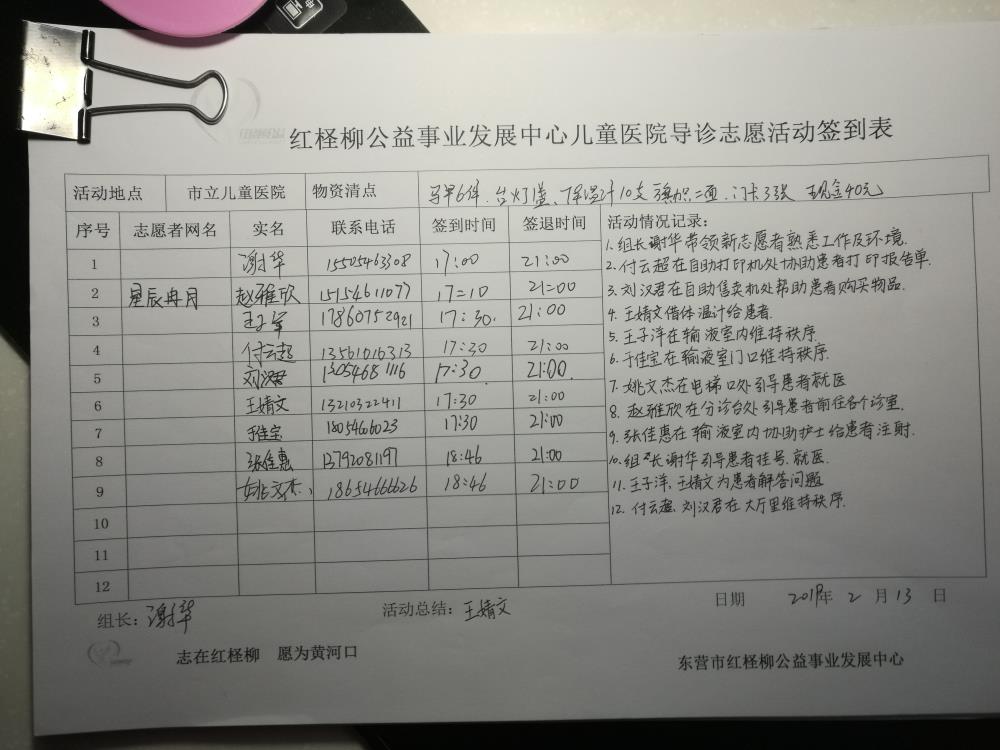 红柽柳公益事业发展中心儿童医院导诊志愿活动签到表
活动地点 市立儿童医院 物资清点 马甲6件、台灯1盏、体温计10支 二通、门卡3张 现金40元
序号 志愿者网名 实名 联系电话 签到时间 签退时间 活动情况记录:
1 谢华 15505463308 17:00 21:00
2 星辰冉月 赵雅欣 15154611077 17=10 21=00
3 王子洋 17860752921 17:30. 21:00
4 付云超 13561016313 17:30 21:00
5 刘汉君 13054681116 17:30 21:00.
6 王婧文 13210322411 17:30 21:00
7 于佳宝 1805466023 17:30 21:00
8 张佳惠 13792081197 18:46 21:00
9 姚文杰 18654666626 18:46 21:00
10
11
12
1. 组长谢华带领新志愿者熟悉工作及环境.
2. 付云超在自助打印机处协助患者打印报告单.
3. 刘汉君在自助售卖机处帮助患者购买物品.
4. 王婧文借体温计给患者.
5. 王子洋在输液室内维持秩序.
6. 于佳宝在输液室门口维持秩序.
7. 姚文杰在电梯口处引导患者就医
8. 赵雅欣在分诊台处引导患者前往各个诊室.
9. 张佳惠在输液室内协助护士给患者注射.
10. 组长谢华引导患者挂号.就医.
11. 王子洋、王婧文为患者解答问题
12. 付云超、刘汉君在大厅里维持秩序.
组长: 谢华 活动总结: 王婧文 日期 2019年 2 月 13 日
志在红柽柳 愿为黄河口
东营市红柽柳公益事业发展中心